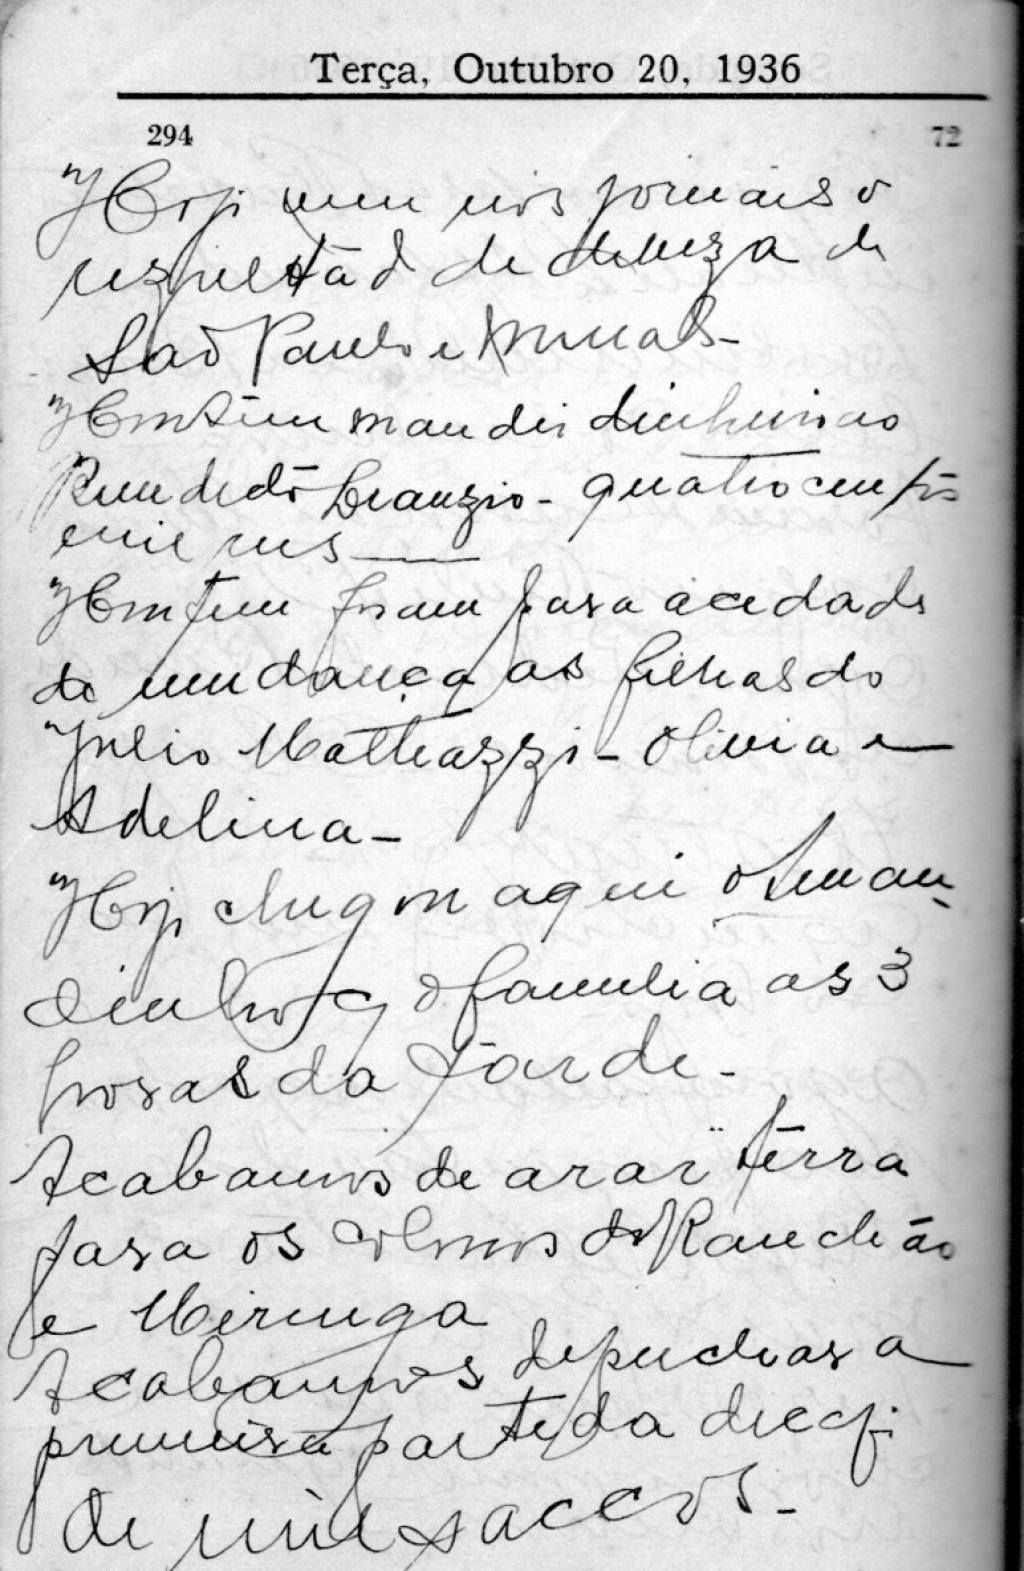 Terça, Outubro 20, 1936
294 72
Hoje vem nos jornais o
de
São Paulo e Minas -
Hontem mandei dinheiro ao
Benedcto - quatrocentos
e mil reis
Hontem foram para a cidade
de mudança as filhas do
Julio Matheazzi - Olivia e
Adelina -
Hoje chegou aqui o Aman-
dinho c/ a familia as 3
horas da tarde -
Acabamos de arar terra
para os colonos do Ranchão
e
Acabamos de puchar a
primeira parte da de caf.
de mil saccos. -